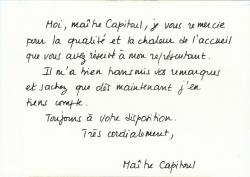 Moi, maître Capitoul, je vous remercie
pour la qualité et la chaleur de l'accueil
que vous avez réservé à mon représentant.
Il m'a bien transmis vos remarques
et sachez que dès maintenant j'en
tiens compte.
Toujours à votre disposition.
Très cordialement,
Maître Capitoul